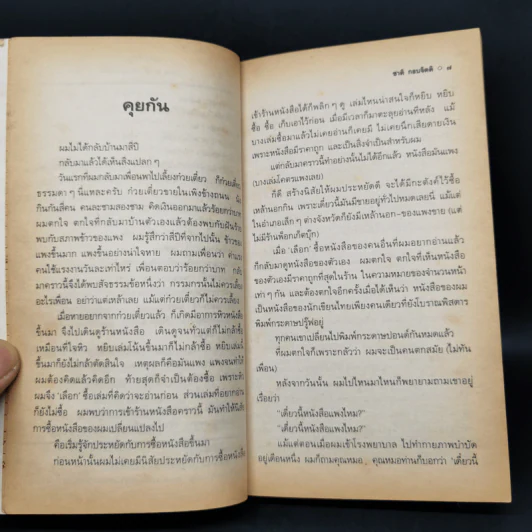 คุยกัน
ผมไม่ได้กลับบ้านมาสี่ปี
กลับมาแล้วได้เห็นสิ่งแปลกๆ
วันแรกที่ผมกลับมาเพื่อนพาไปเลี้ยงก๋วยเตี๋ยว ก็ก๋วยเตี๋ยว
ธรรมดาๆ นี่แหละครับ ก๋วยเตี๋ยวขายในเพิงข้างถนน นั่ง
กินกันสี่คน คนละชามสองชาม คิดเงินออกมาแล้วร้อยกว่าบาท
ผมตกใจ ตกใจที่กลับมาบ้านตัวเองแล้วต้องพบกับฝันร้าย
พบกับสภาพข้าวของแพง ผมรู้สึกว่าสี่ปีที่จากไปนั้น ข้าวของ
แพงขึ้นมาก แพงขึ้นอย่างน่าใจหาย ผมถามเพื่อนว่า ค่าแรง
คนใช้แรงงานวันละเท่าไหร่ เพื่อนตอบว่าร้อยกว่าบาท กลับ
มาคราวนี้จึงได้พบสัจธรรมข้อหนึ่งว่า กรรมกรนั้นไม่ควรเลี้ยง
อะไรเพื่อน อย่าว่าแต่เหล้าเลย แม้แต่ก๋วยเตี๋ยวก็ไม่ควรเลี้ยง
เมื่อหายอยากจากก๋วยเตี๋ยวแล้ว ก็เกิดมีอาการหิวหนังสือ
ขึ้นมา จึงไปเดินดูร้านหนังสือ เดินดูจนทั่วแต่ก็ไม่กล้าซื้อ
เหมือนที่ใจหิว หยิบเล่มโน้นขึ้นมาก็ไม่กล้าซื้อ หยิบเล่มนี้
ขึ้นมาก็ยังไม่กล้าตัดสินใจ เหตุผลก็คือมันแพง แพงจนทำให้
ผมต้องคิดแล้วคิดอีก ท้ายสุดก็จำเป็นต้องซื้อ เพราะหิว
ผมจึง 'เลือก' ซื้อเล่มที่คิดว่าจะอ่านก่อน ส่วนเล่มที่อยากอ่าน
ก็ยังไม่ซื้อ ผมพบว่าการเข้าร้านหนังสือคราวนี้ มันทำให้นิสัย
การซื้อหนังสือของผมเปลี่ยนแปลงไป
คือเริ่มรู้จักประหยัดกับการซื้อหนังสือขึ้นมา
ก่อนหน้านั้นผมไม่เคยมีนิสัยประหยัดกับการซื้อหนังสือ
ชาติ กอบจิตติ ○ ๗
เข้าร้านหนังสือได้ก็พลิกๆ ดู เล่มไหนน่าสนใจก็หยิบ หยิบ
ซื้อ ซื้อ เก็บเอาไว้ก่อน เมื่อมีเวลาก็มาตะลุยอ่านทีหลัง แม้
บางเล่มซื้อมาแล้วไม่เคยอ่านก็เคยมี ไม่เคยนึกเสียดายเงิน
เพราะหนังสือมีราคาถูก และเป็นสิ่งจำเป็นสำหรับผม
แต่กลับมาคราวนี้ทำอย่างนั้นไม่ได้อีกแล้ว หนังสือมันแพง
(บางเล่มโคตรแพงเลย)
ก็ดี สร้างนิสัยให้ผมประหยัดดี จะได้มีกะตังค์ไว้ซื้อ
เหล้านอกกิน เพราะเดี๋ยวนี้มันมีขายอยู่ทั่วไปหมดเลยนี่ แม้แต่
ในอำเภอเล็กๆ ต่างจังหวัดก็ยังมีเหล้านอก-ของแพงขาย (แต่
ไม่มีร้านฟ้อกเก็ตบุ๊ก)
เมื่อ 'เลือก' ซื้อหนังสือของคนอื่นที่ผมอยากอ่านแล้ว
ก็กลับมาดูหนังสือของตัวเอง ผมตกใจ ตกใจที่เห็นหนังสือ
ของตัวเองมีราคาถูกที่สุดในร้าน ในความหมายของจำนวนหน้า
เท่าๆ กัน และต้องตกใจอีกครั้งเมื่อได้เห็นว่า หนังสือของผม
เป็นหนังสือของนักเขียนไทยเพียงคนเดียวที่ยังโบราณพิสดาร
พิมพ์กระดาษปรู๊ฟอยู่
ทุกคนเขาเปลี่ยนไปพิมพ์กระดาษปอนด์กันหมดแล้ว
ที่ผมตกใจก็เพราะกลัวว่า ผมจะเป็นคนตกสมัย (ไม่ทัน
เพื่อน)
หลังจากวันนั้น ผมไปไหนมาไหนก็พยายามถามเขาอยู่
เรื่อยว่า
"เดี๋ยวนี้หนังสือแพงไหม?"
"เดี๋ยวนี้หนังสือแพงไหม?"
แม้แต่ตอนเมื่อผมเข้าโรงพยาบาล ไปทำกายภาพบำบัด
อยู่เดือนหนึ่ง ผมก็ถามคุณหมอ คุณหมอท่านก็บอกว่า 'เดี๋ยวนี้